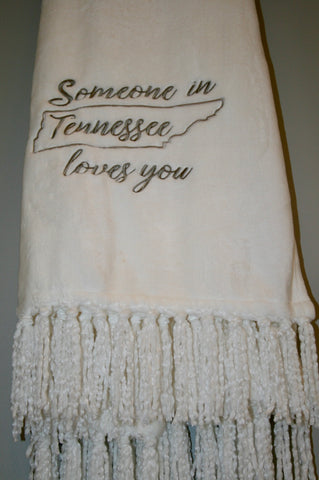 Someone in
Tennessee
loves you